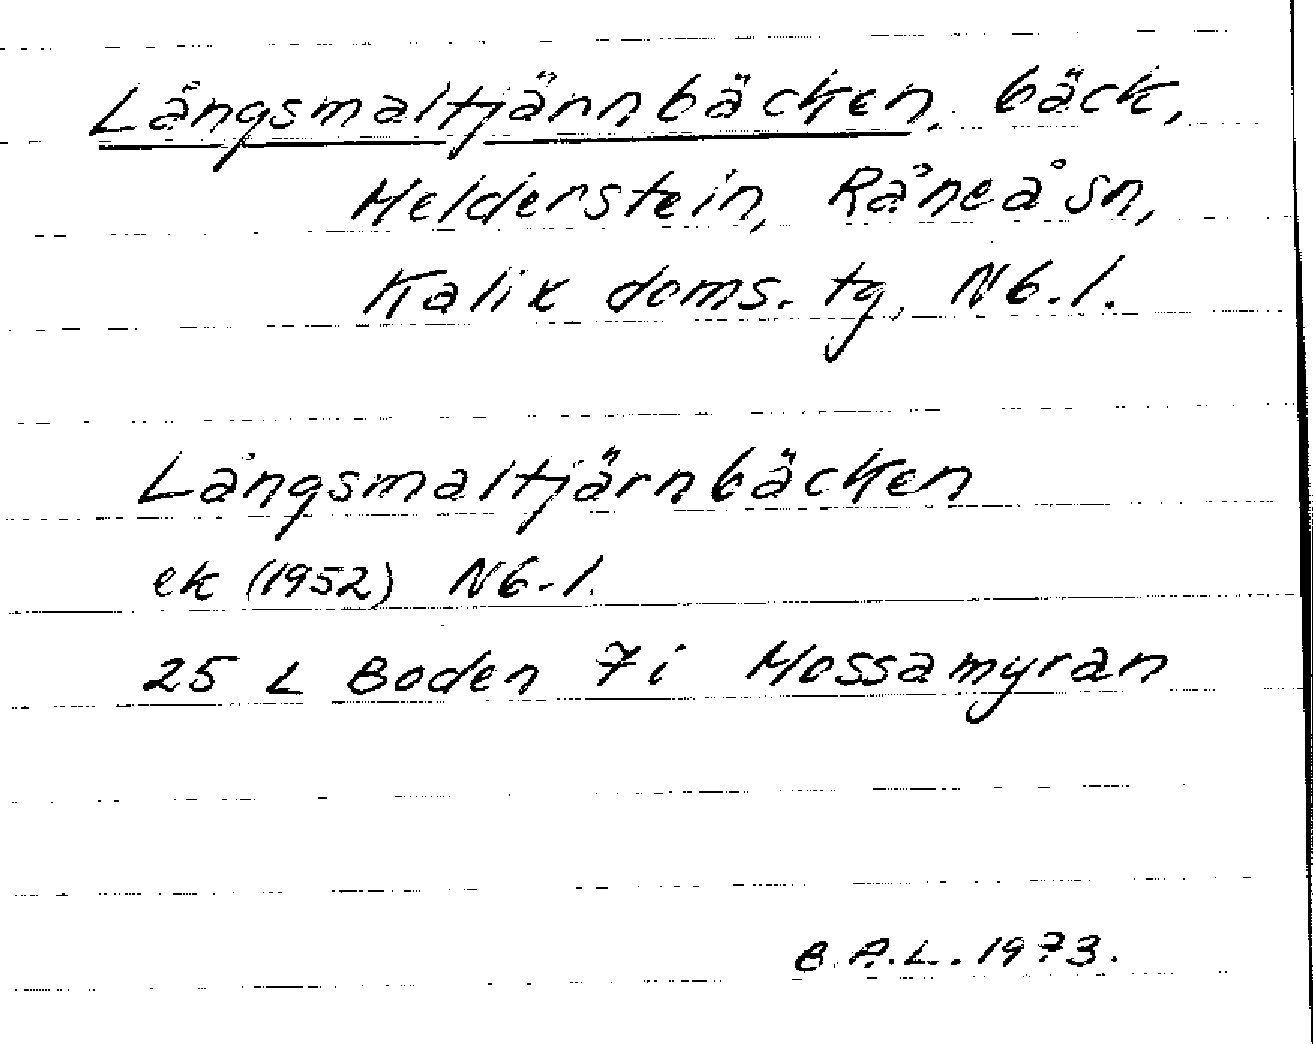 Långsmaltjännbäcken, bäck,
Melderstein, Råneå sn,
Kalix doms. tg, Nb.l.
Långsmaltjärnbäcken
ek (1952) Nb.l.
25 L Boden 7i Mossamyran
B.A.L. 1973.